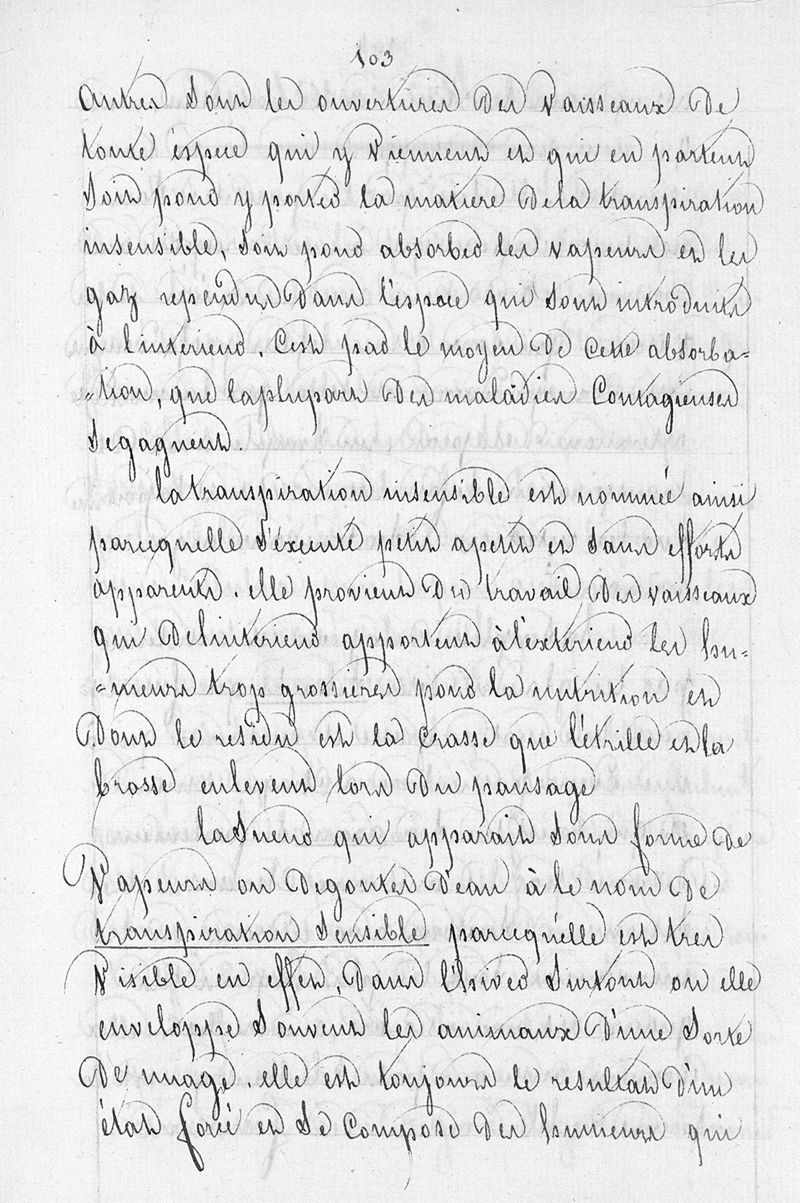 103
autres sont les ouvertures des vaisseaux de
toute éspece qui y viennent et qui en partent
soit pour y porter la matiere dela transpiration
insensible, soit pour absorber les vapeurs et les
gaz rependus dans l'espace qui sont introduits
à l'interieur. C'est par le moyen de cette absorba=
=tion, que laplupart des maladies Contagieuses
segagnent.
latranspiration insensible est nommée ainsi
parcequelle s'éxécute petit apetit et sans efforts
apparents. elle provient du travail des vaisseaux
qui delinterieur apportent à l'extérieur les hu=
=meurs trop grossieres pour la nutrition et
dont le residu est la crasse que l'étrille et la
brosse enlevent lors du pansage
laSueur qui apparait sous forme de
vapeurs ou degoutes d'eau à le nom de
transpiration sensible parcequ'elle est tres
visible en effet, dans l'hiver surtout ou elle
enveloppe souvent les animaux d'une sorte
de nuage. elle est toujours le resultat d'un
état forcé et se compose des humeurs qui